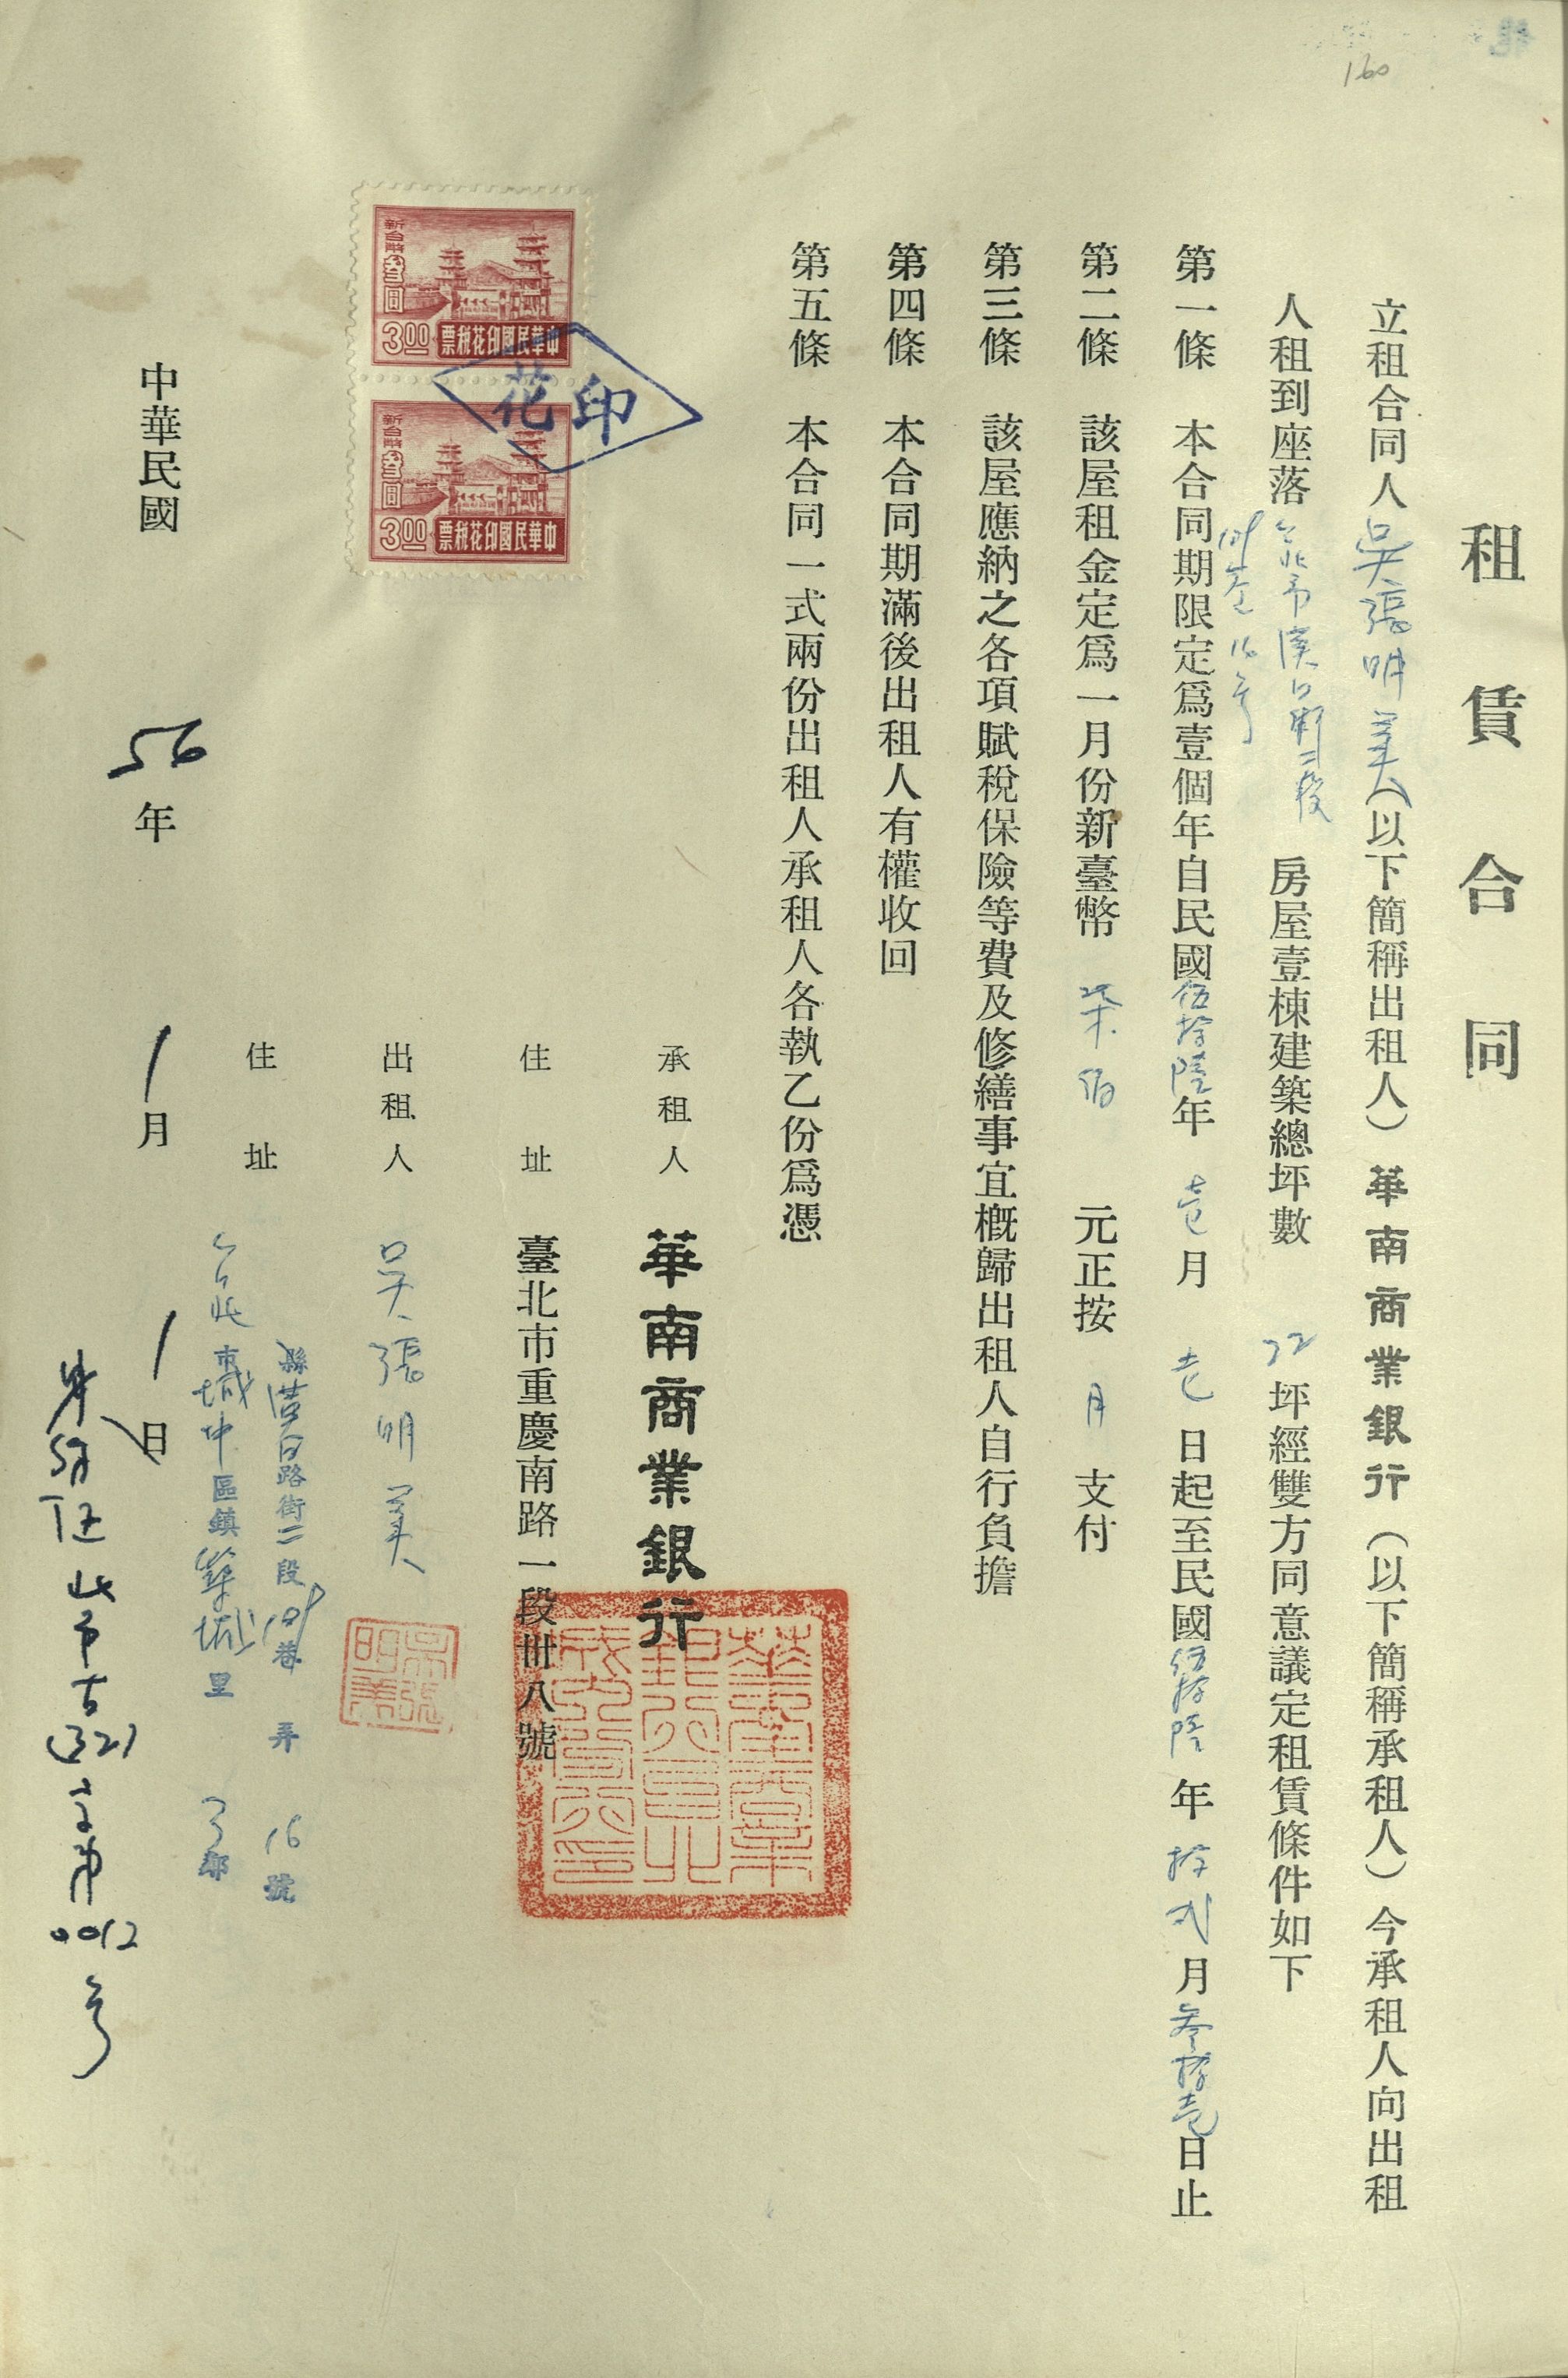 160
租賃合同
立租合同人吳張明美(以下簡稱出租人)華南商業銀行(以下簡稱承租人)今承租人向出租
人租到座落台北市漢口街二段
巷16号
房屋壹棟建築總坪數22坪經雙方同意議定租賃條件如下
第一條 本合同期限定爲壹個年自民國伍拾陸年壹月壱日起至民國伍拾陸年拾弍月叁拾壱日止
第二條 該屋租金定爲一月份新臺幣柒佰元正按月支付
第三條 該屋應納之各項賦稅保險等費及修繕事宜概歸出租人自行負擔
第四條 本合同期滿後出租人有權收回
第五條 本合同一式兩份出租人承租人各執乙份爲憑
新台幣叁圓
3.00
中華民國印花稅票
印花
新台幣叁圓
3.00
中華民國印花稅票
承租人 華南商業銀行
住址 臺北市重慶南路一段卅八號
華南商業銀行臺北城內分行印
出租人 吳張明美
吳張明美
住址
縣漢口路街二段巷弄16號
台北市城中區鎮里鄰
中華民國56年1月1日
身分証北市古(32)字第0012号